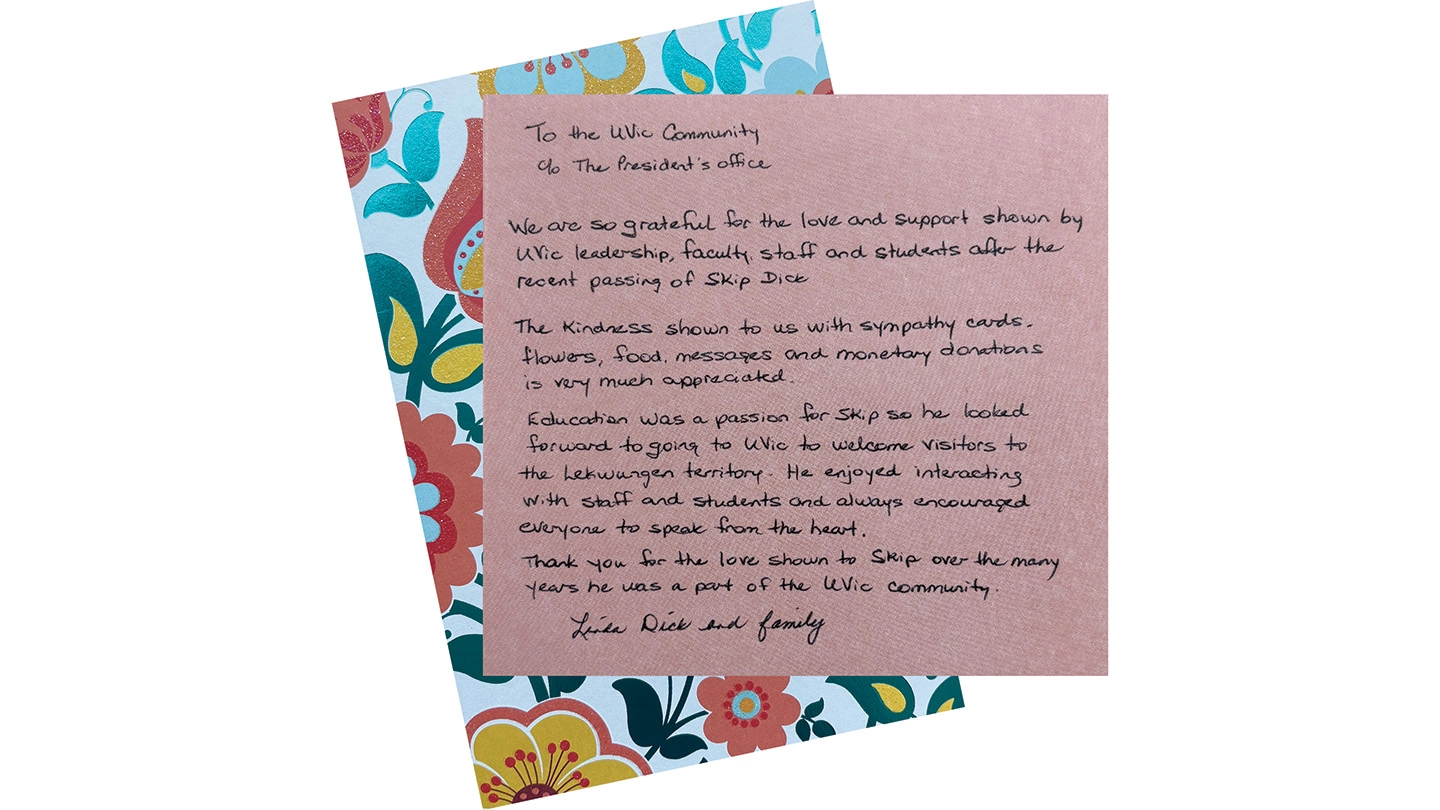 To the UVic Community
c/o The President's office
We are so grateful for the love and support shown by
UVic leadership, faculty, staff and students after the
recent passing of Skip Dick
The kindness shown to us with sympathy cards.
flowers, food, messages and monetary donations
is very much appreciated.
Education was a passion for Skip so he looked
forward to going to UVic to welcome visitors to
the Lekwungen territory. He enjoyed interacting
with staff and students and always encouraged
everyone to speak from the heart.
Thank you for the love shown to Skip over the many
years he was a part of the UVic community.
Linda Dick and family